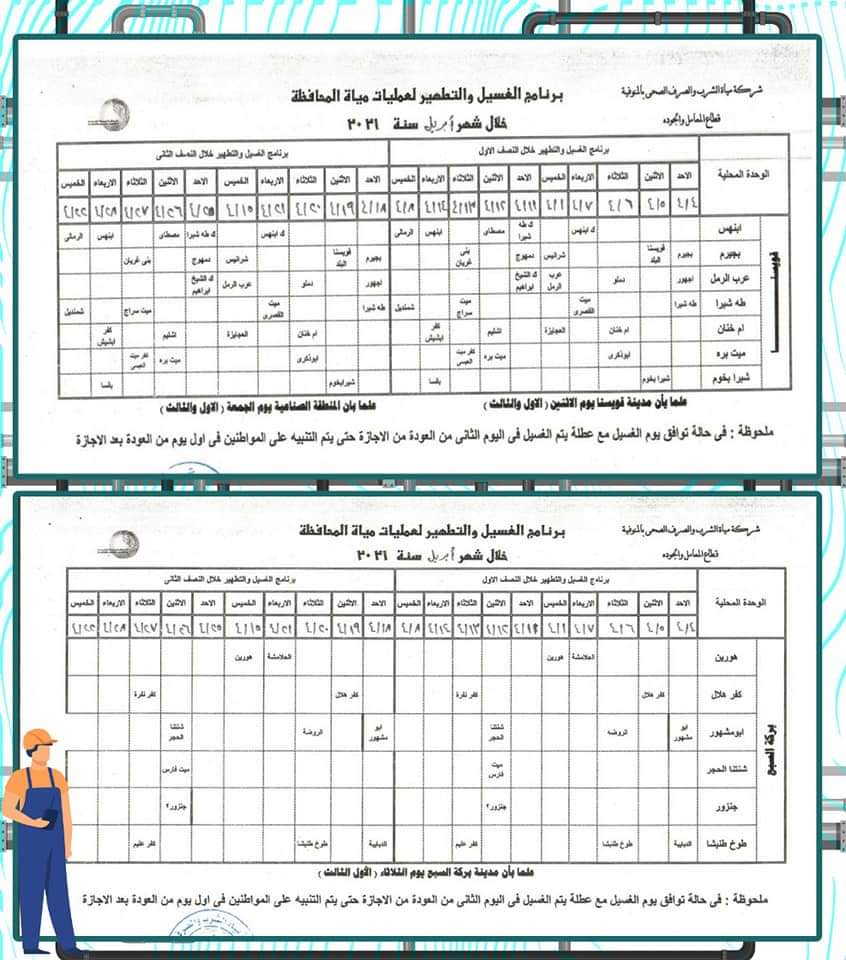 شركة مياة الشرب والصرف الصحى بالمنوفية
قطاع المعامل والجوده
برنامج الغسيل والتطهير لعمليات مياة المحافظة
خلال شهر أبريل سنة ٢٠٢١
الوحدة المحلية برنامج الغسيل والتطهير خلال النصف الاول برنامج الغسيل والتطهير خلال النصف الثانى
الاحد الاثنين الثلاثاء الاربعاء الخميس الاحد الاثنين الثلاثاء الاربعاء الخميس الاحد الاثنين الثلاثاء الاربعاء الخميس الاحد الاثنين الثلاثاء الاربعاء الخميس
٤/٤ ٤/٥ ٤/٦ ٤/٧ ٤/١ ٤/١١ ٤/١٢ ٤/١٣ ٤/١٤ ٤/٨ ٤/١٨ ٤/١٩ ٤/٢٠ ٤/٢١ ٤/١٥ ٤/٢٥ ٤/٢٦ ٤/٢٧ ٤/٢٨ ٤/٢٢
قويسنا
ابنهس ك ابنهس ك طه شبرا مصطاى ابنهس الرمالى ك ابنهس ك طه شبرا مصطاى ابنهس الرمالى
بجيرم بجيرم قويسنا البلد شرانيس دمهوج بنى غريان بجيرم قويسنا البلد شرانيس دمهوج بنى غريان
عرب الرمل اجهور دملو عرب الرمل ك الشيخ ابراهيم اجهور دملو عرب الرمل ك الشيخ ابراهيم
طه شبرا طه شبرا ميت القصرى ميت سراج شمنديل طه شبرا ميت القصرى ميت سراج شمنديل
ام خنان ام خنان العجايزة اشليم كفر ابشيش ام خنان العجايزة اشليم كفر ابشيش
ميت بره ابوذكرى ميت بره كفر ميت العبسى ابوذكرى ميت بره كفر ميت العبسى
شبرا بخوم شبرا بخوم باسا شبرابخوم باسا
علما بأن مدينة قويسنا يوم الاثنين ( الاول والثالث ) علما بان المنطقة الصناعية يوم الجمعة ( الاول والثالث )
ملحوظة : فى حالة توافق يوم الغسيل مع عطلة يتم الغسيل فى اليوم الثانى من العودة من الاجازة حتى يتم التنبيه على المواطنين فى اول يوم من العودة بعد الاجازة
شركة مياة الشرب والصرف الصحى بالمنوفية
قطاع المعامل والجوده
برنامج الغسيل والتطهير لعمليات مياة المحافظة
خلال شهر أبريل سنة ٢٠٢١
الوحدة المحلية برنامج الغسيل والتطهير خلال النصف الاول برنامج الغسيل والتطهير خلال النصف الثانى
الاحد الاثنين الثلاثاء الاربعاء الخميس الاحد الاثنين الثلاثاء الاربعاء الخميس الاحد الاثنين الثلاثاء الاربعاء الخميس الاحد الاثنين الثلاثاء الاربعاء الخميس
٤/٤ ٤/٥ ٤/٦ ٤/٧ ٤/١ ٤/١١ ٤/١٢ ٤/١٣ ٤/١٤ ٤/٨ ٤/١٨ ٤/١٩ ٤/٢٠ ٤/٢١ ٤/١٥ ٤/٢٥ ٤/٢٦ ٤/٢٧ ٤/٢٨ ٤/٢٢
بركة السبع
هورين الحلامشة هورين الحلامشة هورين
كفر هلال كفر هلال كفر نفرة كفر هلال كفر نفرة
ابومشهور ابو مشهور الروضه شنتنا الحجر ابو مشهور الروضة شنتنا الحجر
شنتنا الحجر ميت فارس ميت فارس
جنزور جنزور٢ جنزور٢
طوخ طنبشا الدبابية طوخ طنبشا كفر عليم الدبابية طوخ طنبشا كفر عليم
علما بأن مدينة بركة السبع يوم الثلاثاء ( الأول الثالث )
ملحوظة : فى حالة توافق يوم الغسيل مع عطلة يتم الغسيل فى اليوم الثانى من العودة من الاجازة حتى يتم التنبيه على المواطنين فى اول يوم من العودة بعد الاجازة